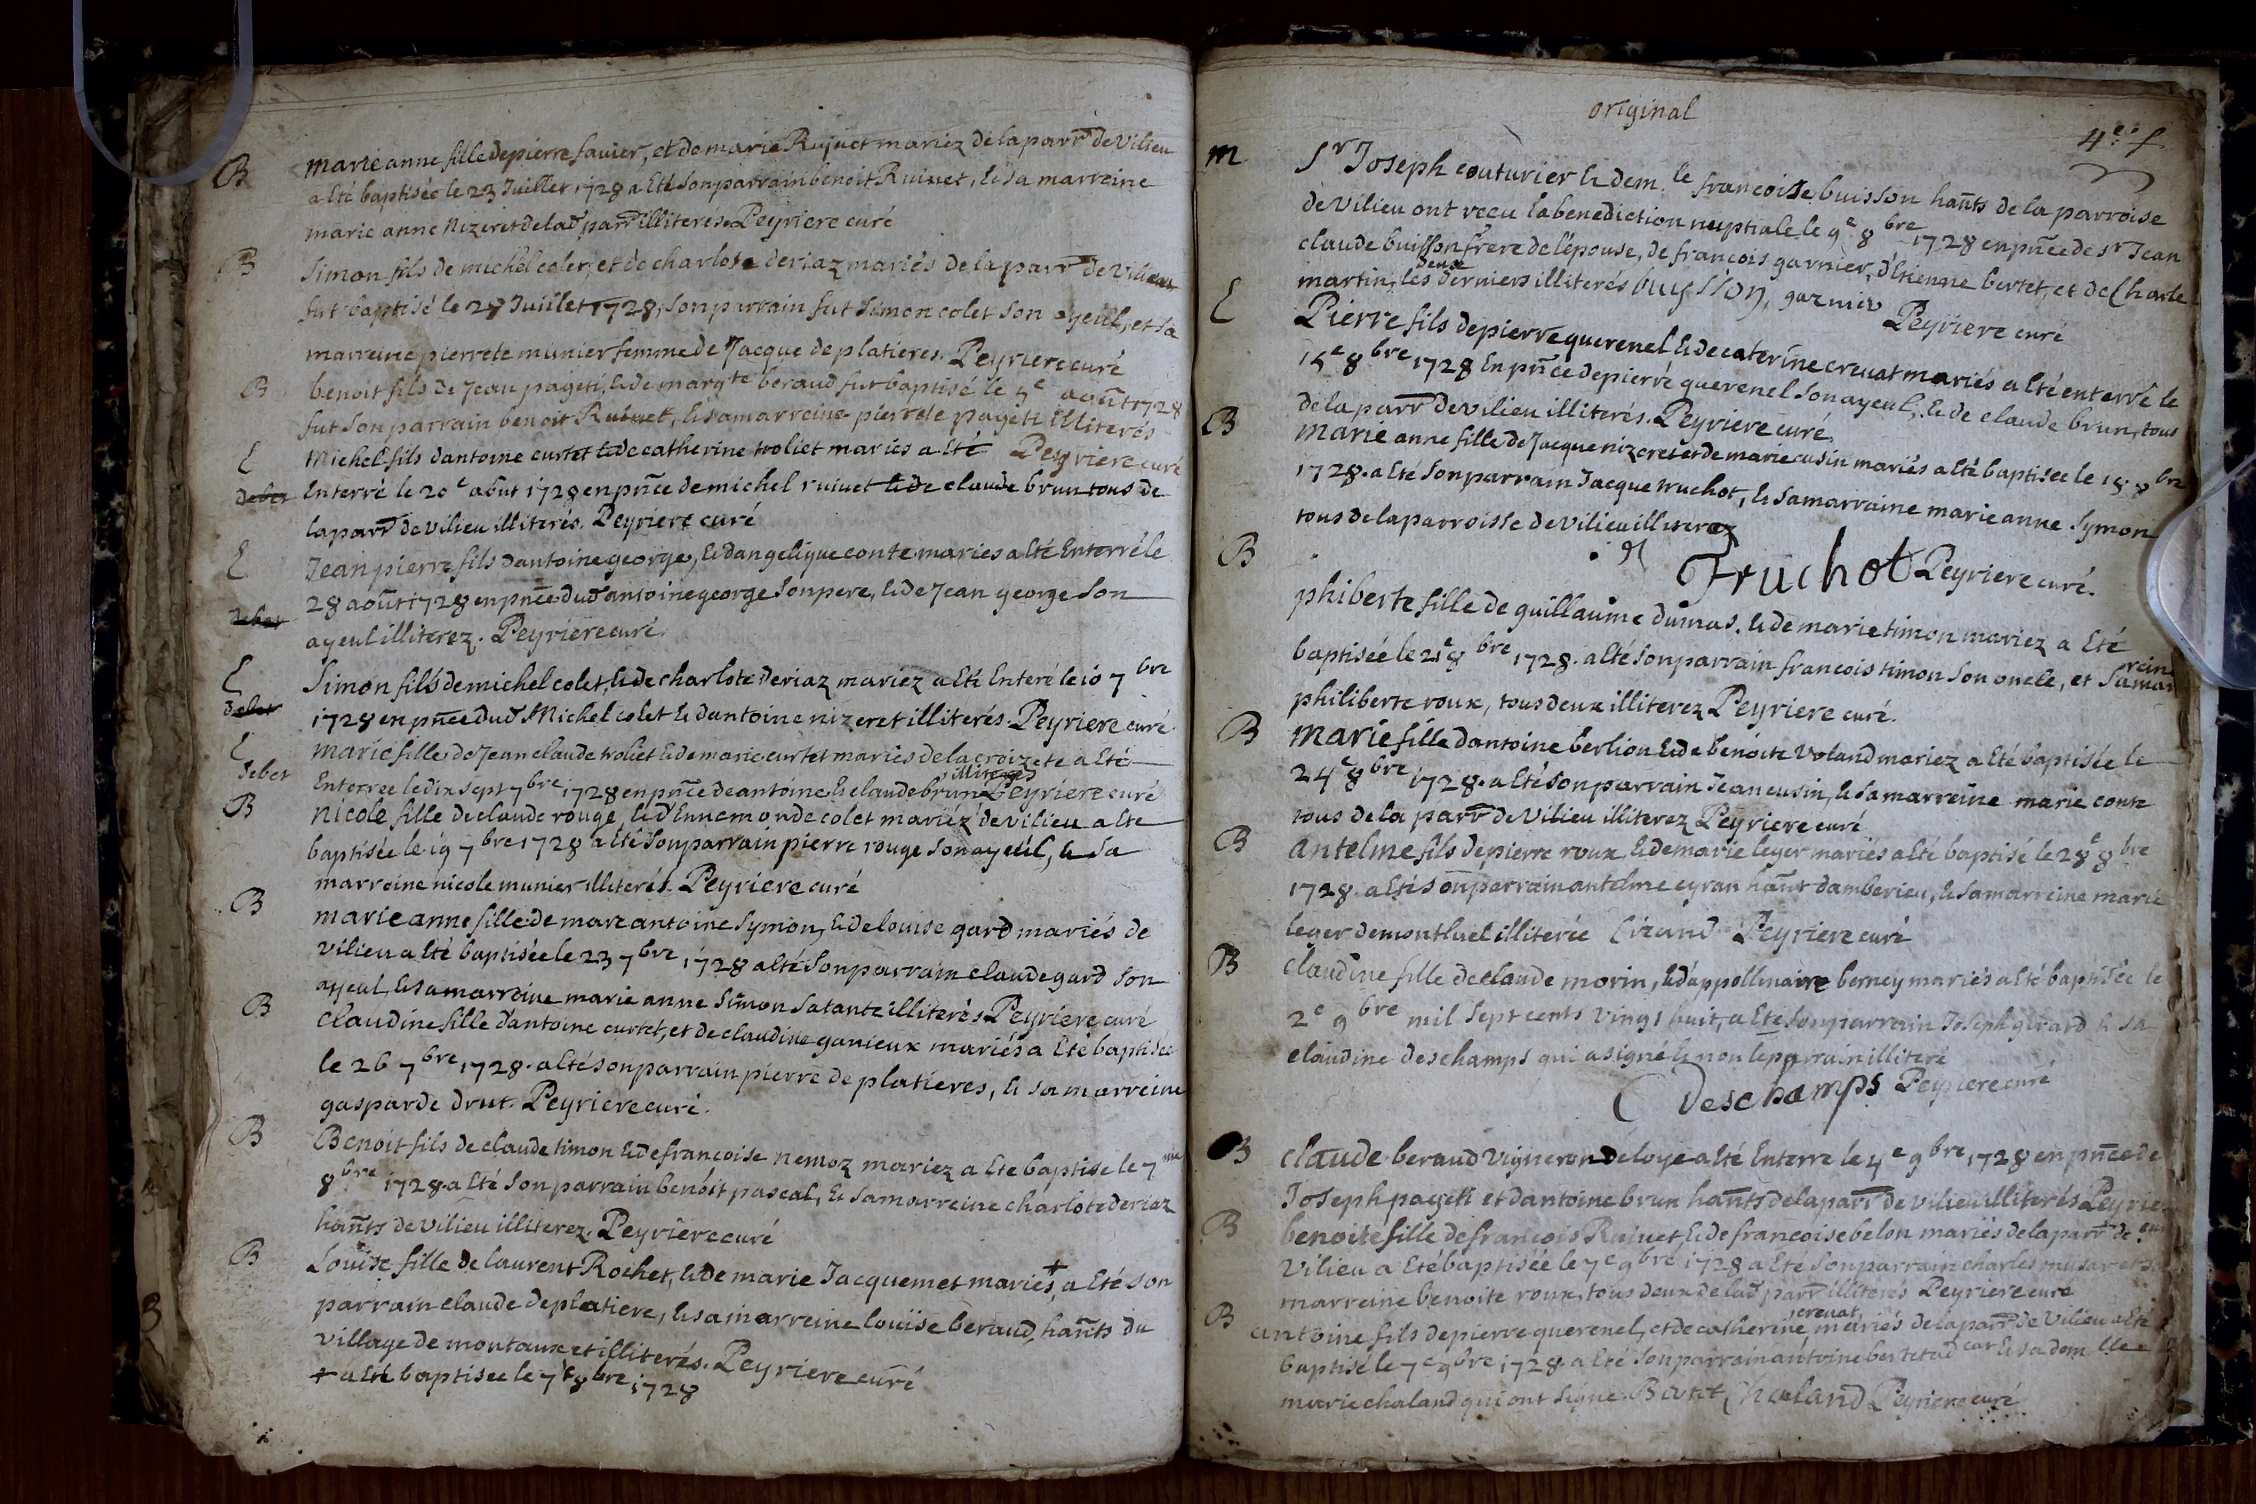 B marie anne fille de pierre favier, et de marie Rujuet mariez de la parr de Vilieu
a Eté baptisée le 23 Juillet 1728 a Eté son parrain benoit Ruivet, & sa marreine
marie anne Nizeret de lad parr illiterés Peyriere curé
B Simon fils de michel colet, et de charlote deriaz mariés de la parr de Vilieu
fut baptisé le 28 Juillet 1728, son parrain fut Simon colet son ayeul, et sa
marreine pierrete munier femme de Jacque de platieres. Peyriere curé
B benoit fils de Jean pageti, & de margte beraud fut baptisé le 5e août 1728
fut son parrain benoit Ruivet, & sa marreine pierrete pageti illiterés
Peyriere curé
E Michel fils dantoine curtet & de catherine troliet mariés a Eté
debet Enterré le 20e aout 1728 en pnce de michel ruivet & de claude brun tous de
la parr de vilieu illiterés. Peyriere curé
E Jean pierre fils dantoine george, & dangelique conte mariés a Eté Enterré le
debet 28 août 1728 en pnce dud antoine george son pere, & de Jean george son
ayeul illiterez. Peyriere curé.
E Simon fils de michel colet, & de charlote deriaz mariez a Eté Enteré le 10 7bre
debet 1728 en pnce dud Michel colet & dantoine nizeret illiterés. Peyriere curé
E marie fille de Jean claude troliet & de marie curtet mariés de la croizete a Eté
debet Enterrée le dix sept 7bre 1728 en pnce de antoine & claude brun illiterés Peyriere curé
B Nicole fille de claude rouge, & d'Ennemonde colet mariéz de vilieu a Eté
baptisée le 19 7bre 1728 a Eté son parrain pierre rouge son ayeul, & sa
marreine nicole munier illiterés. Peyriere curé
B marie anne fille de marc antoine Symon, & de louise gard mariés de
vilieu a Eté baptisée le 23 7bre 1728 a Eté son parrain claude gard son
ayeul, & sa marreine marie anne Simon sa tante illiterés Peyriere curé
B Claudine fille d'antoine curtet, et de claudine ganieux mariés a Eté baptisée
le 26 7bre 1728. a Eté son parrain pierre de platieres, & sa marreine
gasparde drut. Peyriere curé.
B Benoit fils de claude timon & de francoise nemoz mariez a Eté baptisé le 7me
8bre 1728. a Eté son parrain benoit pascal, & sa marreine charlote deriaz
hants de vilieu illiterez. Peyriere curé
B Louise fille de laurent Rochet, & de marie Jacquemet mariés + a Eté son
parrain claude de platiere, & sa marreine louise beraud, hants du
village de montaux et illiterés. Peyriere curé
+ a Eté baptisée le 7e 8bre 1728
original
4e f
m Sr Joseph couturier & demlle francoise buisson hants de la parroise
de Vilieu ont recu la benediction nuptiale le 9e 8bre 1728 en pnce de Sr Jean
claude buisson frere de l'épouse, de francois garnier, d'Etienne bertet, et de Charle
martin, les deux derniers illiterés buission, garnier Peyriere curé
E Pierre fils de pierre querenel & de caterine crevat mariés a Eté enterré le
15e 8bre 1728 En pnce de pierre querenel son ayeul, & de claude brun, tous
de la parr de vilieu illiterés. Peyriere curé.
B Marie anne fille de Jacque nizeret et de marie cusin mariés a Eté baptisée le 18. 8bre
1728. a Eté son parrain Jacque truchot, & sa marraine marie anne Symon
tous de la parroisse de Vilieu illiterez
Truchot Peyriere curé.
B phiberte fille de guillaume dumas, & de marie timon mariez a Eté
baptisée le 21e 8bre 1728. a Eté son parrain francois timon son oncle, et sa marreine
philiberte roux, tous deux illiterez Peyriere curé.
B Marie fille dantoine berlion & de benoite Voland mariez a Eté baptisée le
24e 8bre 1728. a Eté son parrain Jean cusin, & sa marreine marie conte
tous de la parr de Vilieu illiterez Peyriere curé
B Antelme fils de pierre roux & de marie leger mariés a Eté baptisé le 28e 8bre
1728. a Eté son parrain antelme eyran hant damberieu, & sa marreine marie
leger de montluel illiterée Peyriere curé
B claudine fille de claude morin, & d'appollinaire berney mariés a Eté baptisée le
2e 9bre mil Sept cents vingt huit, a Eté son parrain Joseph girard & sa
claudine deschamps qui a signé & non le parrain illiteré
Deschamps Peyriere curé
B claude beraud vigneron de loye a Eté Enterré le 4e 9bre 1728 en pnce de
Joseph pageti et dantoine brun hants de la parr de vilieu illiterés Peyriere
curé
B benoite fille de francois Ruivet, & de francoise belon mariés de la parr de
Vilieu a Eté baptisée le 7e 9bre 1728 a Eté son parrain charles musar et sa
marreine benoite roux, tous deux de lad parr illiterés Peyriere curé
B antoine fils de pierre querenel, et de catherine crevat mariés de la parr de Vilieu a Eté
baptisé le 7e 9bre 1728 a Eté son parrain antoine bertet & sa demlle
marie chaland qui ont signe. Bertet Chaland Peyriere curé